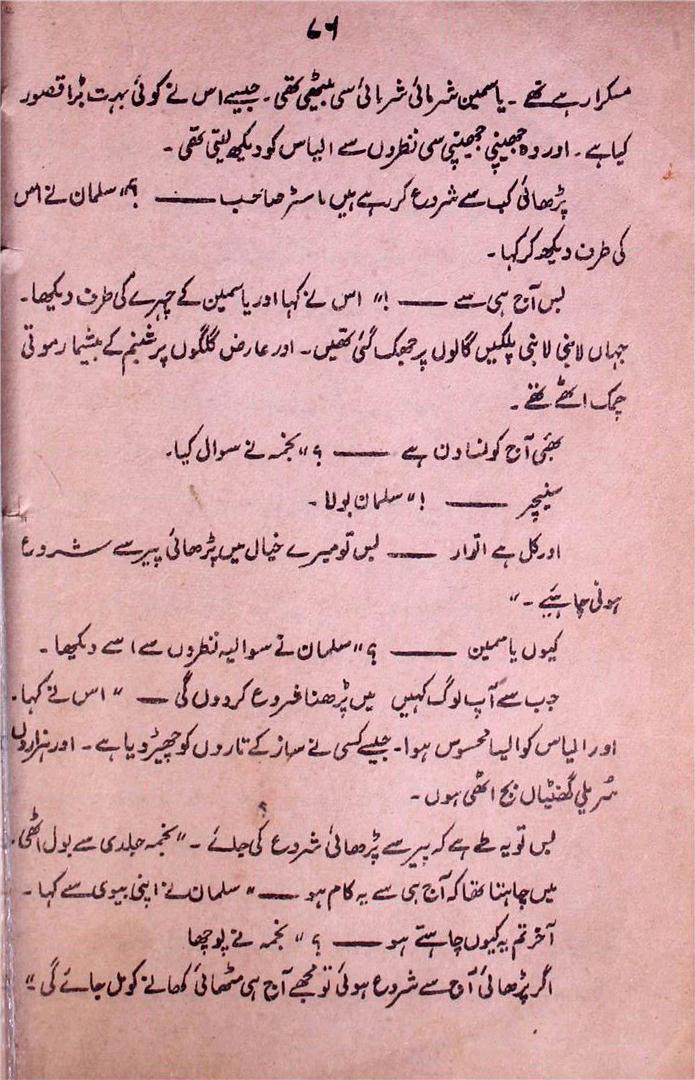 ۷۶
مسکرا رہے تھے ۔ یاسمین شرمائی شرمائی سی بیٹھی تھی ۔ جیسے اس نے کوئی بہت بڑا قصور
کیا ہے ۔ اور وہ جھینپی جھینپی سی نظروں سے الیاس کو دیکھ لیتی تھی ۔
پڑھائی کب سے شروع کر رہے ہیں ماسٹر صاحب ——— ؟" سلمان نے اس
کی طرف دیکھ کر کہا ۔
بس آج ہی سے ——— !" اس نے کہا اور یاسمین کے چہرے کی طرف دیکھا ۔
جہاں لانبی لانبی پلکیں گالوں پر جھک گئی تھیں ۔ اور عارض گلگوں پر شبنم کے بیشمار موتی
چمک اٹھے تھے ۔
بھئی آج کونسا دن ہے ——— ؟" نجمہ نے سوال کیا ۔
سنیچر ——— !" سلمان بولا ۔
اور کل ہے اتوار ——— بس تو میرے خیال میں پڑھائی پیر سے شروع
ہونی چاہئیے ۔"
کیوں یاسمین ——— ؟" سلمان نے سوالیہ نظروں سے اسے دیکھا ۔
جب سے آپ لوگ کہیں میں پڑھنا شروع کر دوں گی —— " اس نے کہا ۔
اور الیاس کو ایسا محسوس ہوا ۔ جیسے کسی نے ساز کے تاروں کو چھیڑ دیا ہے ۔ اور ہزاروں
سُریلی گھنٹیاں بج اٹھی ہوں ۔
بس تو یہ طے ہے کہ پیر سے پڑھائی شروع کی جائے ۔" نجمہ جلدی سے بول اٹھی ۔
میں چاہتا تھا کہ آج ہی سے یہ کام ہو ——" سلمان نے اپنی بیوی سے کہا ۔
آخر تم یہ کیوں چاہتے ہو ——— ؟" نجمہ نے پوچھا
اگر پڑھائی آج سے شروع ہوئی تو مجھے آج ہی مٹھائی کھانے کو مل جائے گی "